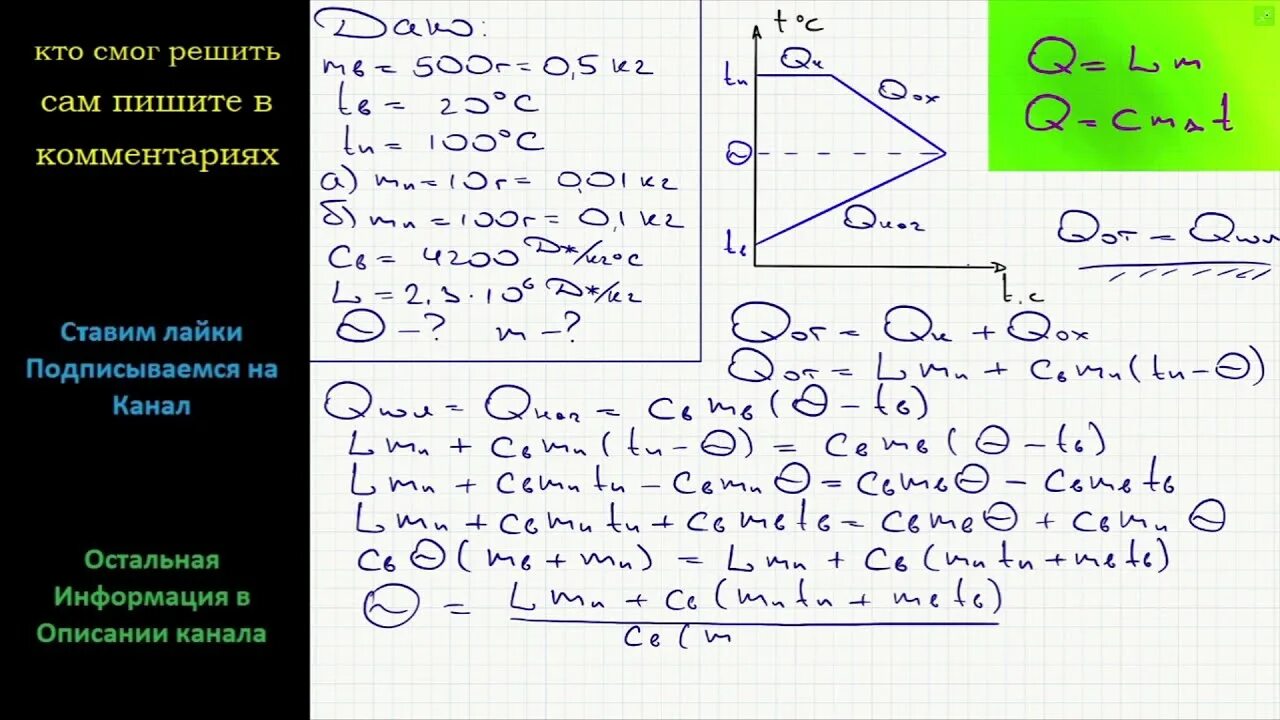 кто смог решить
сам пишите в
комментариях
Ставим лайки
Подписываемся на
Канал
Остальная
Информация в
Описании канала
Дано:
mв = 500г = 0,5 кг
tв = 20°C
tп = 100°C
а) mп = 10г = 0,01 кг
б) mп = 100г = 0,1 кг
Cв = 4200 Дж/кг°C
L = 2,3·10⁶ Дж/кг
Θ - ? m - ?
t°C
tп
Qк
Qох
Θ
Qнаг
tв
t, c
Q = Lm
Q = cmΔt
Qот = Qпол
Qот = Qк + Qох
Qот = Lmп + Cвmп(tп - Θ)
Qпол = Qнаг = Cвmв(Θ - tв)
Lmп + Cвmп(tп - Θ) = Cвmв(Θ - tв)
Lmп + Cвmпtп - CвmпΘ = CвmвΘ - Cвmвtв
Lmп + Cвmпtп + Cвmвtв = CвmвΘ + CвmпΘ
CвΘ(mв + mп) = Lmп + Cв(mпtп + mвtв)
Θ = Lmп + Cв(mпtп + mвtв)
Cв(m